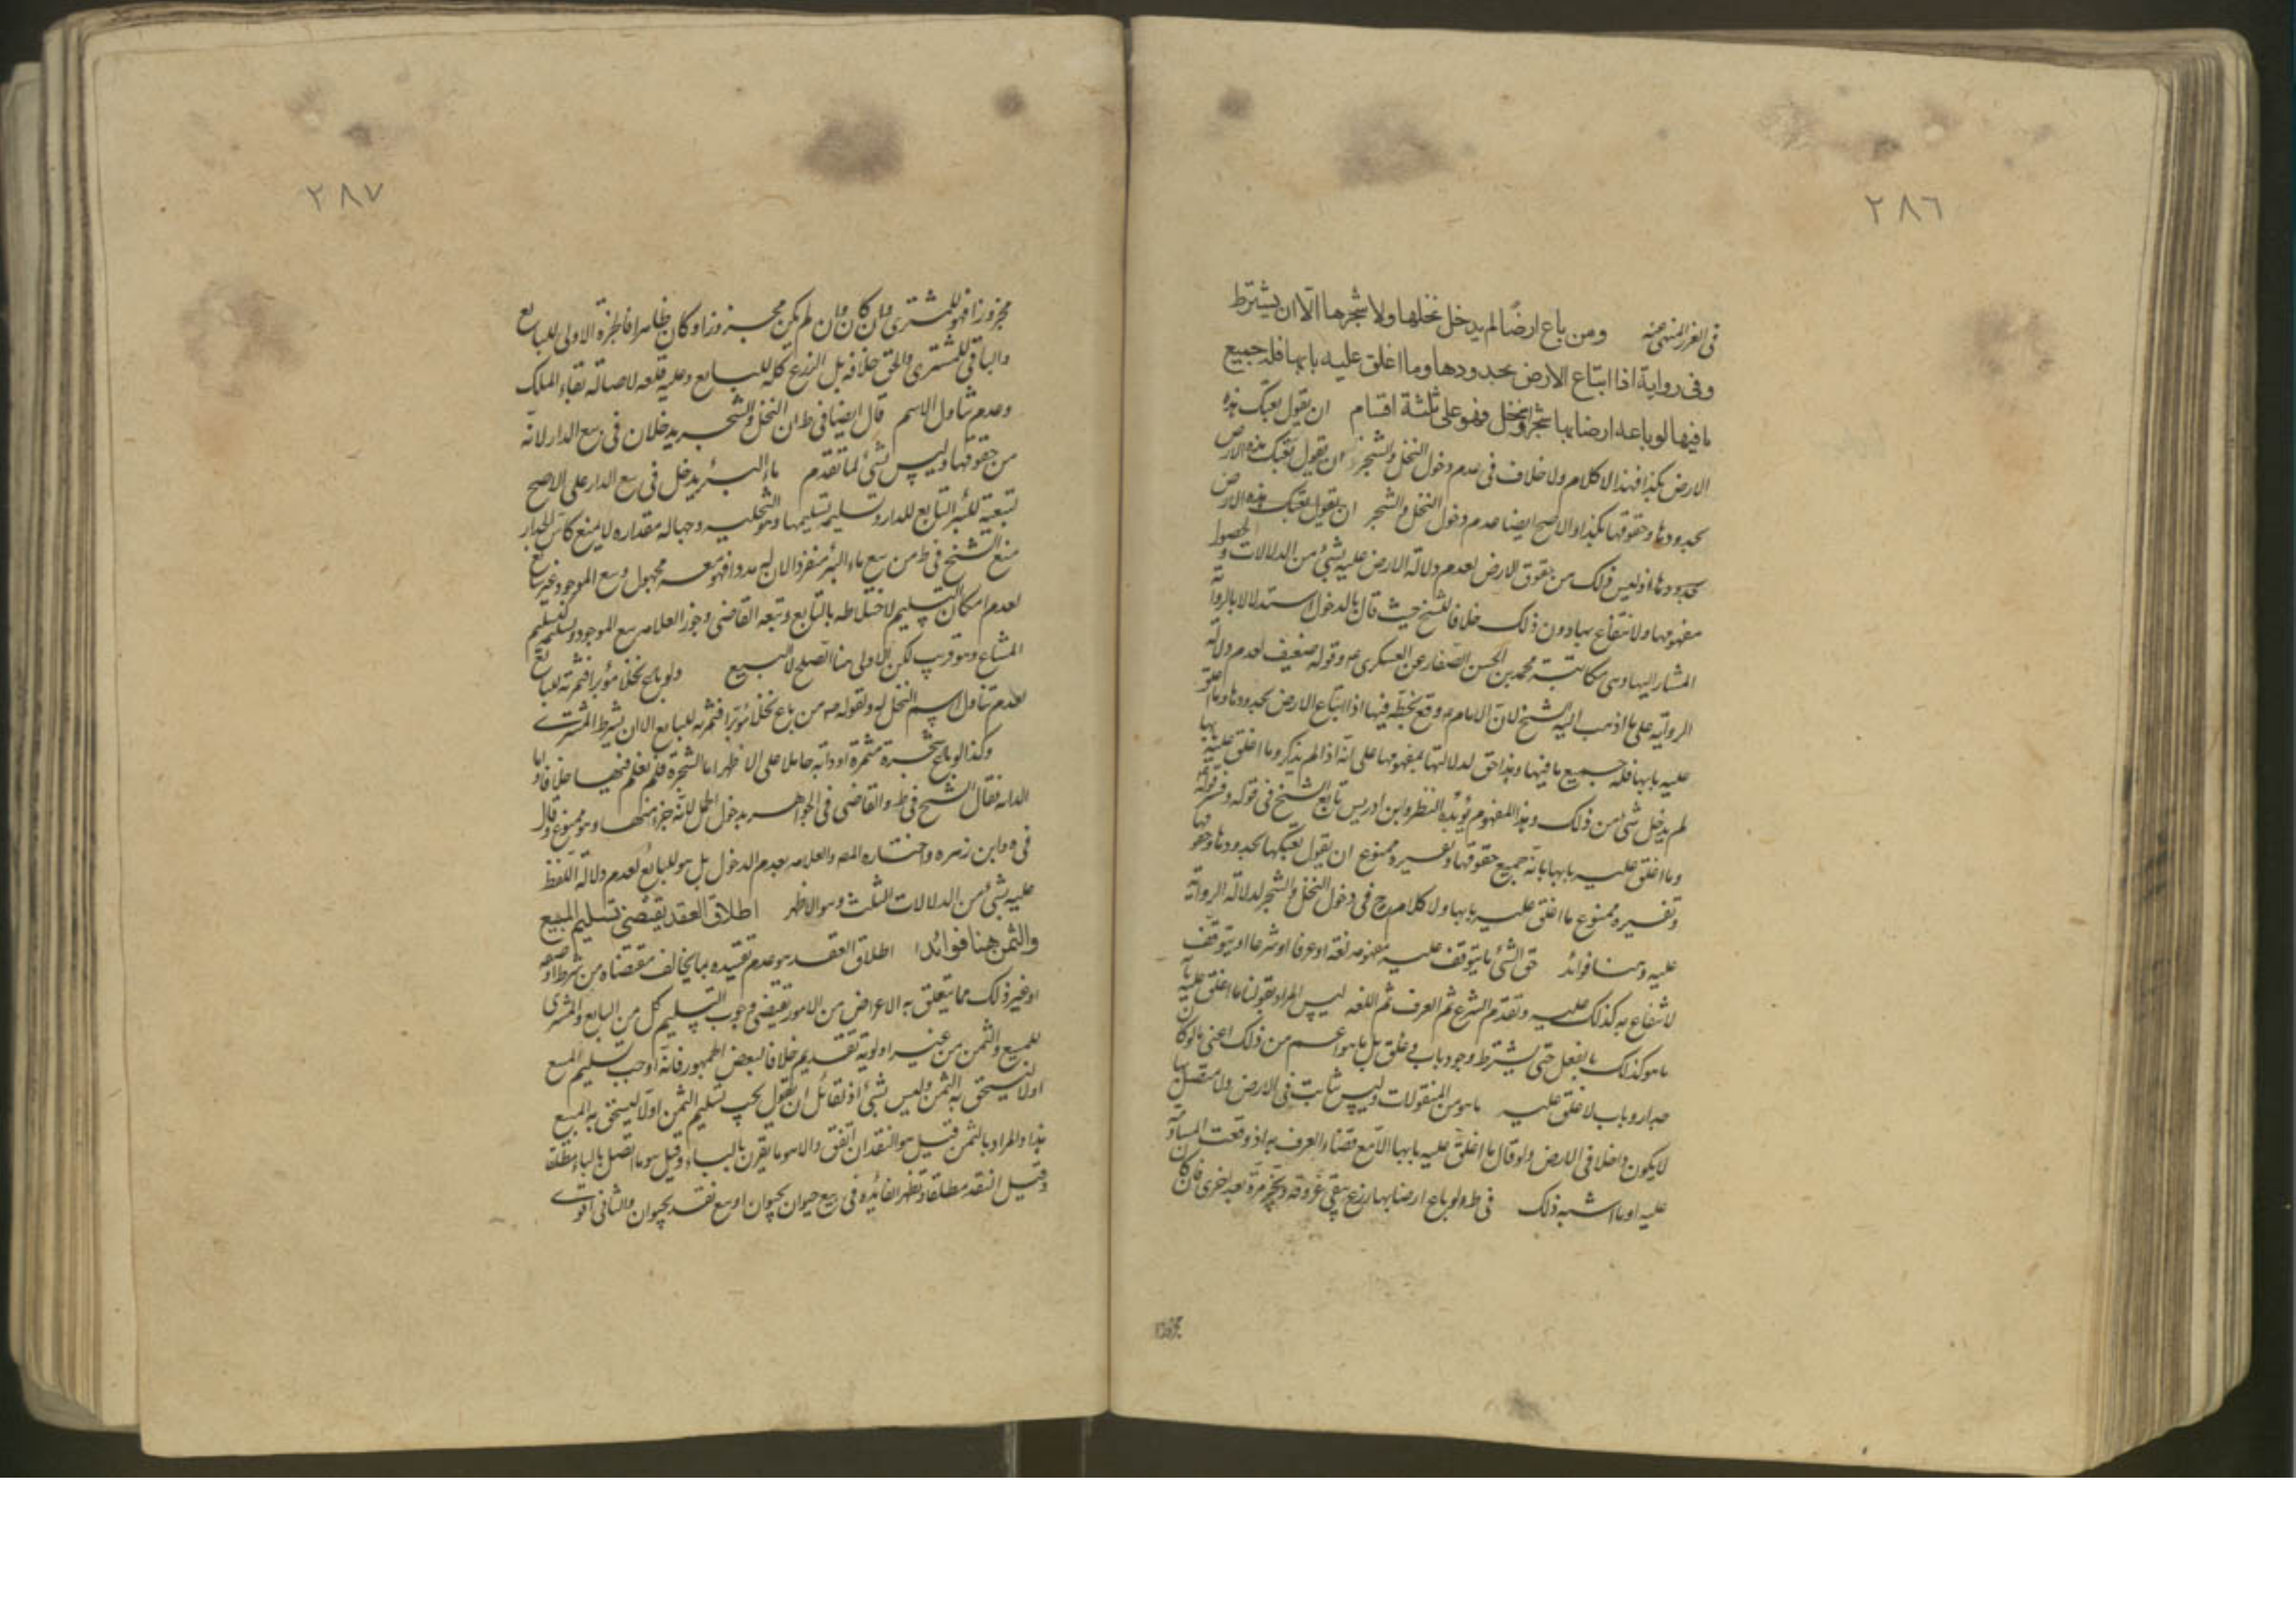 ٢٨٦
فى الغرر المنهى عنه ومن باع ارضًا لم يدخل نخلها ولا شجرها الّا ان يشترط
وفى رواية اذا ابتاع الارض بحدودها وما اغلق عليه بابها فله جميع
ما فيها لو باعه ارضا بها شجر او نخل فهو على ثلثة اقسام ان يقول بعتك هذه
الارض بكذا فهذا لا كلام ولا خلاف فى عدم دخول النخل والشجر ان يقول بعتك هذه الارض
بحدودها وحقوقها بكذا والاصح ايضا عدم دخول النخل والشجر ان يقول بعتك هذه الارض
بحدودها اذ ليس ذلك من حقوق الارض لعدم دلالة الارض عليه بشئ من الدلالات
مفهومها ولانتفاع بها دون ذلك خلافا للشيخ حيث قال بالدخول استدلالا بالرواية
المشار اليها وهى مكاتبة محمد بن الحسن الصفار عن العسكرى ع وقوله ضعيف لعدم دلالة
الرواية على ما ذهب اليه الشيخ لان الامام ع وقع بخطه فيها اذا ابتاع الارض بحدودها وما اغلق
عليه بابها فله جميع ما فيها وهذا حق لدلالتها بمفهومها على انه اذا لم يذكر وما اغلق عليه بابها
لم يدخل شئ من ذلك وهذا المفهوم يؤيده النظر وابن ادريس تابع الشيخ فى قوله وفسر قوله
وما اغلق عليه بابها بانه جميع حقوقها وتفسيره ممنوع ان يقول بعتكها بحدودها وحقوقها
وتفسيره ممنوع ما اغلق عليه بابها ولا كلام ح فى دخول النخل والشجر لدلالة الرواية
عليه وهنا فوائد حق الشئ ما يتوقف عليه مفهومه لغة او عرفا او شرعا او يتوقف
لانتفاع به كذلك عليه وتقدم الشرع ثم العرف ثم اللغه ليس المراد بقولنا ما اغلق عليه بابه
ما هو كذلك بالفعل حتى يشترط وجود باب وغلق بل ما هو اعم من ذلك اعنى ما لو كان بها
جدار وباب لاغلق عليه ما هو من المنقولات وليس ثابت فى الارض ولا متصل
لا يكون داخلا فى الارض ولو قال ما اغلق عليه بابها الا مع قضاء العرف به اذ وقعت المساومة
عليه او ما اشبه ذلك فى ط ولو باع ارضا بها زرع يبقى عروقه ويجز مرة بعد اخرى فان كان
مجزوزا
٢٨٧
مجزوزا فهو للمشترى وان كان وان لم يكن مجزوزا وكان ظاهرا فالجزة الاولى للبايع
والباقى للمشترى والحق خلافه بل الزرع كله للبايع وعليه قلعه لاصالة بقاء الملك
وعدم تناول الاسم قال ايضا فى ط ان النخل والشجر يدخلان فى بيع الدار لانه
من حقوقها وليس بشئ لما تقدم ماء البئر يدخل فى بيع الدار على الاصح
تبعية للبئر التابع للدار وتسليمه تسليمها وهو التخليه وجهالة مقداره لا يمنع كاس الجدار
منع الشيخ فى ط من بيع ماء البئر منفردا لان له مددا فهو معه مجهول وبيع الموجود غير سائغ
لعدم امكان التسليم لاختلاطه بالتابع وتبعه القاضى وجوز العلامه بيع الموجود وتسليمه كتسليم
المشاع وهو قريب لكن الاولى هنا الصلح لا البيع ولو باع نخلا مؤبرا فثمرته للبايع
لعدم تناول اسم النخل له ولقوله ص من باع نخلا مؤبرا فثمرته للبايع الا ان يشرط المشترى
وكذا لو باع شجرة مثمرة او دابه حاملا على الاظهر اما الشجرة فلم نعلم فيها خلافا واما
الدابه فقال الشيخ فى ط والقاضى فى الجواهر يدخول الحمل لانه جزء منها وهو ممنوع وقال
فى ه وابن زهره واختاره المص والعلامه بعدم الدخول بل هو للبايع لعدم دلالة اللفظ
عليه بشئ من الدلالات الثلث وهو الاظهر اطلاق العقد يقتضى تسليم المبيع
والثمن هنا فوائد ا اطلاق العقد هو عدم تقييده بما يخالف مقتضاه من شرط او صفه
او غير ذلك مما يتعلق به الاعراض من الامور تقيضى وجوب التسليم كل من البايع والمشترى
للمبيع والثمن من غير اولوية تقديم خلافا لبعض الجمهور فانه اوجب تسليم المبيع
اولا ليستحق به الثمن وليس بشئ اذ لقائل ان يقول يجب تسليم الثمن اولا ليستحق به المبيع
هذا والمراد بالثمن قيل هو النقد ان اتفق والا هو ما يقرن بالباء وقيل هو ما اتصل بالباء مطلقا
وقيل النقد مطلقا وتظهر الفائده فى بيع حيوان بحيوان او بيع نقد بحيوان والثانى اقوى